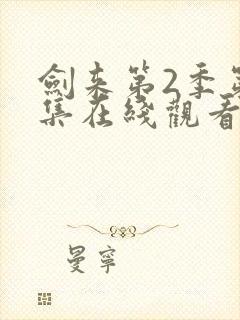 劍来第2季第
集在綫觀看
曼寧